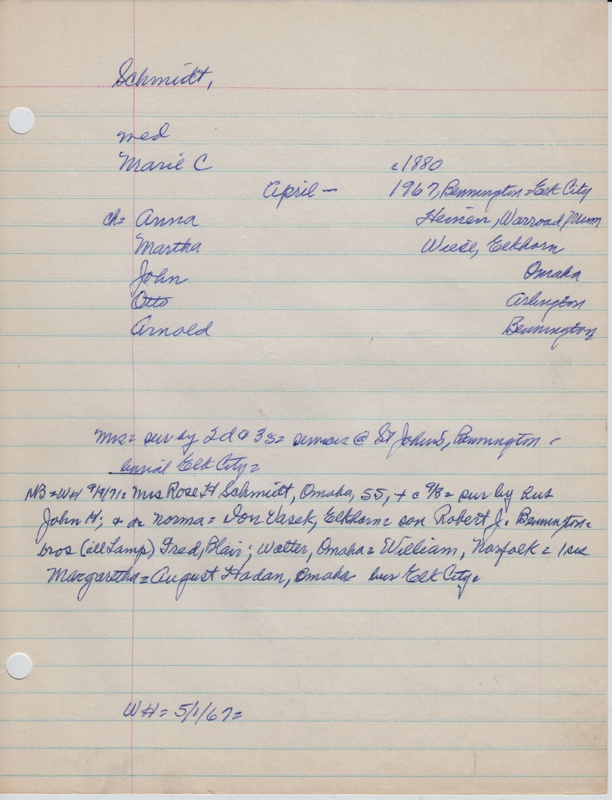 Schmidt,
med
Marie C c1880
April — 1967, Bennington = Elk City
ch= Anna Heinen, Warroad, Minn
Martha Wiese, Elkhorn
John Omaha
Otto Arlington
Arnold Bennington
Mrs = sur by 2 d & 3 s = services @ St John's, Bennington -
burial Elk City =
NB = WH 9/9/71 = Mrs Rose H Schmidt, Omaha, 55, + c 9/8 = sur by hus
John H; & da Norma = Don Vasek, Elkhorn = son Robert J. Bennington =
bros (all Lamp) Fred, Blair; Walter, Omaha = William, Norfolk = 1 sis
Margaretha = August Hadan, Omaha bur Elk City =
WH = 5/1/67 =